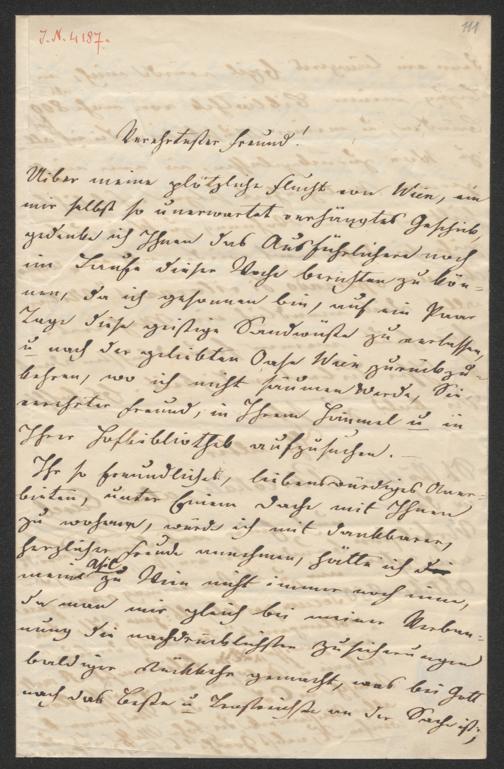 J.N. 4187.
111
Verehrtester Freund!
Uiber meine plötzliche Flucht von Wien, ein
mir selbst so unerwartet verhängtes Geschick,
gedenke ich Ihnen das Ausführlichere noch
im Laufe dieser Woche berichten zu kön-
nen, da ich gesonnen bin, auf ein Paar
Tage diese geistige Sandwüste zu verlassen,
u nach der geliebten Oase Wien zurückzu-
kehren, wo ich nicht säumen werde, Sie
verehrter Freund, in Ihrem Himmel u in
Ihrer Hofbibliothek aufzusuchen. –
Ihr so freundliches, liebenswürdiges Aner-
bieten, unter Einem Dache mit Ihnen
zu wohnen, werde ich mit dankbarer,
herzlicher Freude annehmen, hätte ich
mein Asyl zu Wien nicht immer noch inne,
da man mir gleich bei meiner Verban-
nung die nachdrücklichsten Zusicherungen
baldiger Rückkehr gemacht, was bei Gott
noch das Beste u Tröstlichste an der Sache ist;